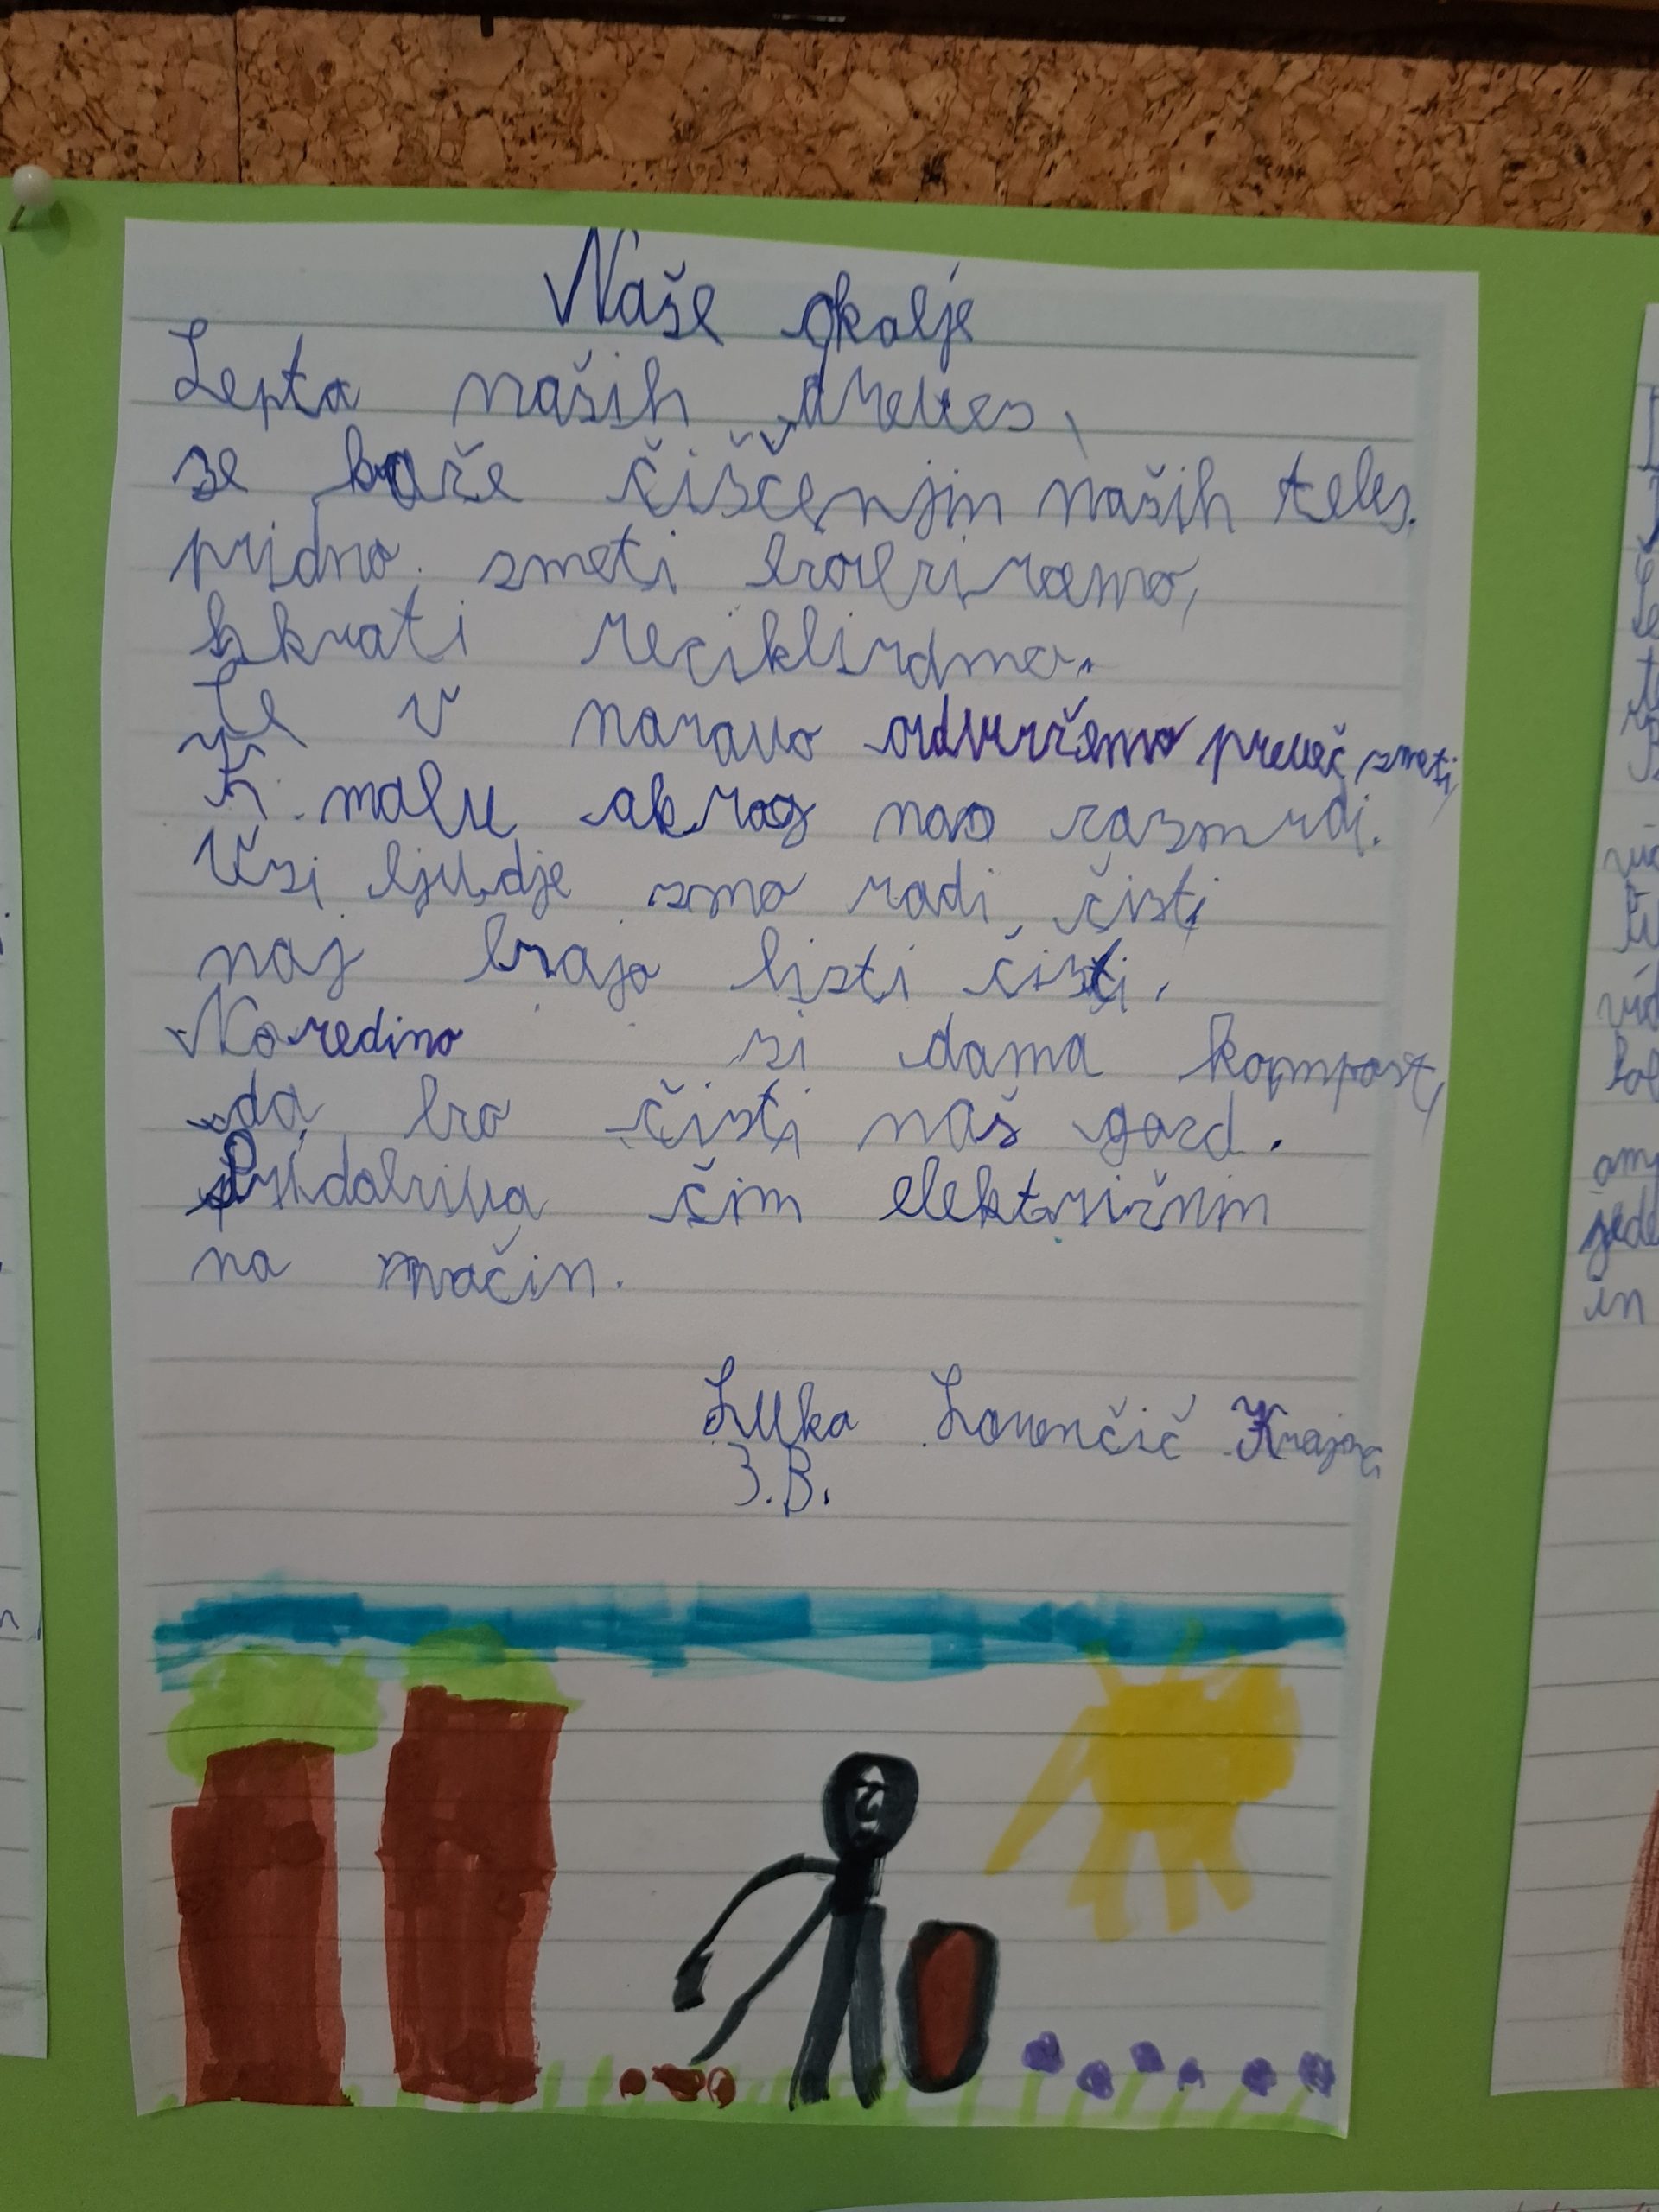 Naše okolje
Lepta naših dreves,
se kaže čiščenjin naših teles.
pridno smeti
hkrati recikliramo.
Če v naravo odvržemo preveč smeti,
K malu okrog nas zasmrdi.
Vsi ljudje smo radi čisti
naj bojo listi čisti.
Naredimo si doma kompost,
da bo čisti naš gozd.
Pridobriva čim elektrižnin
na način.
Luka Lovenčič Krajnc
3.B.